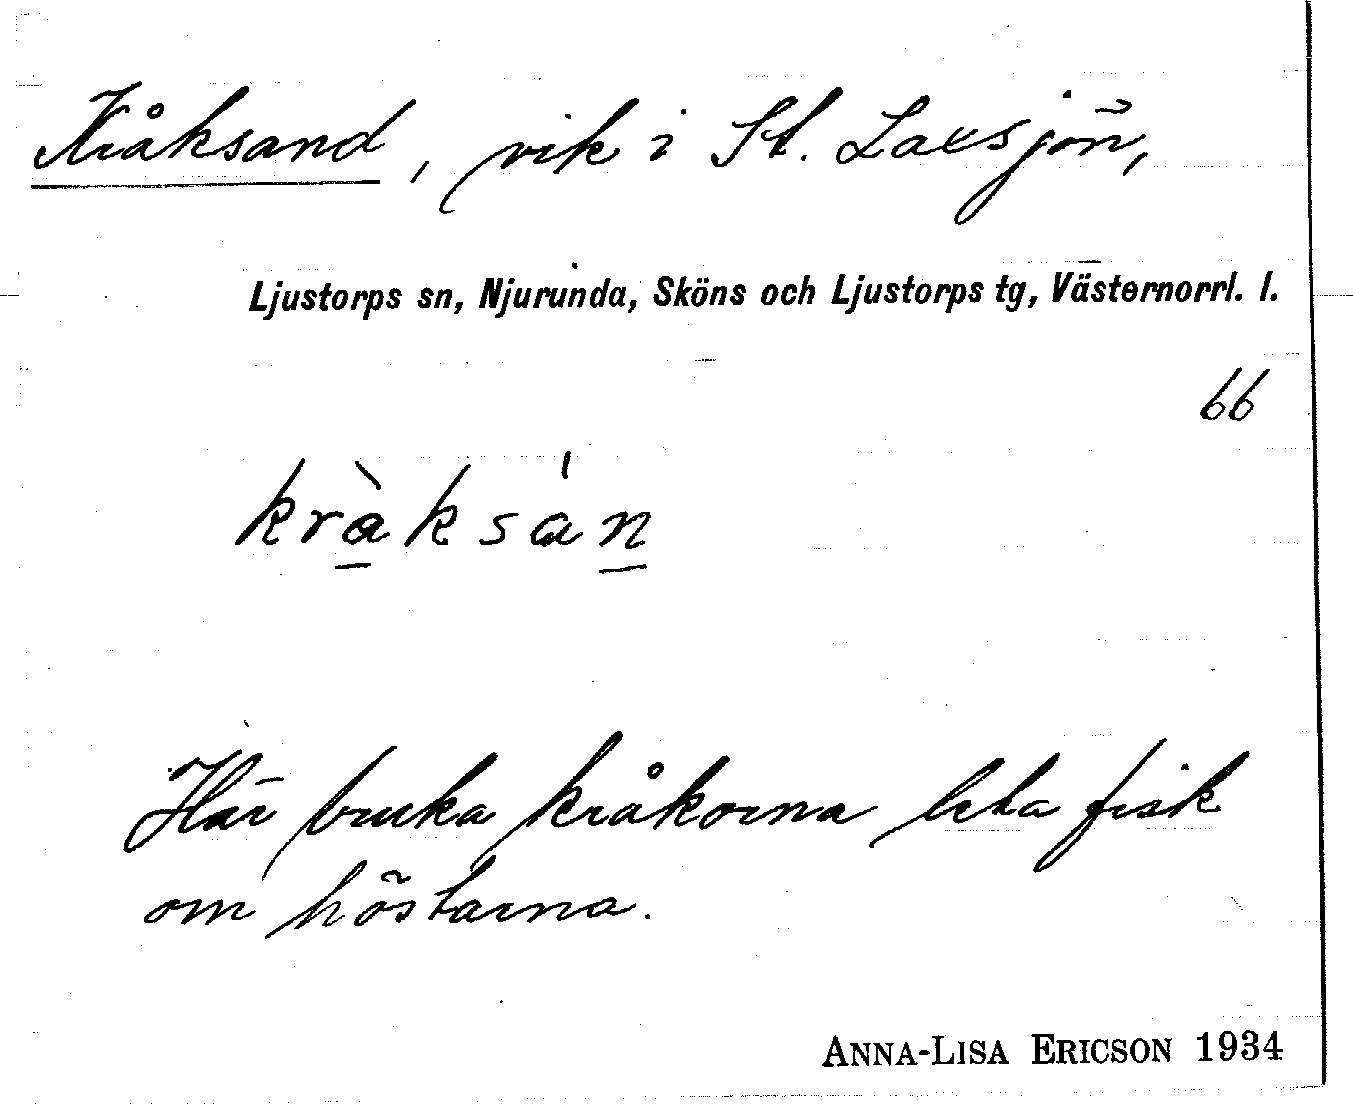 Kråksand, vik i St. Laxsjön,
Ljustorps sn, Njurunda, Sköns och Ljustorps tg, Västernorrl. l.
66
kràksán
Här bruka kråkorna leta fisk
om höstarna.
ANNA-LISA ERICSON 1934